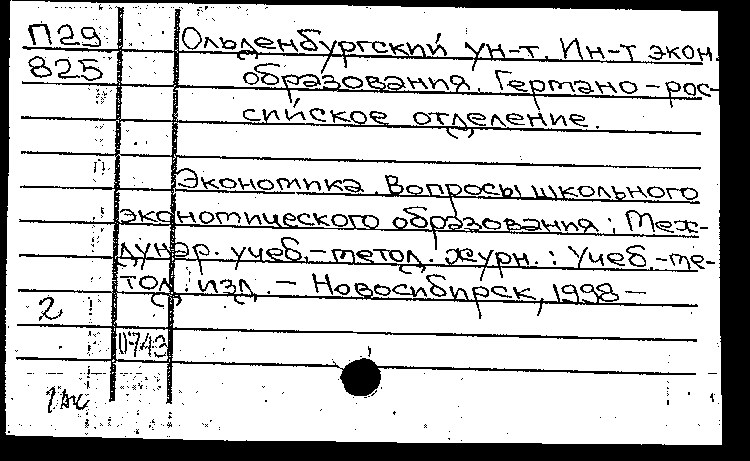 П29
825
Ольденбургский ун-т. Ин-т экон.
образования. Германо-рос-
сийское отделение.
Экономика. Вопросы школьного
экономического образования: Меж-
дунар. учеб.-метод. журн.: Учеб.-ме-
тод. изд. – Новосибирск, 1998 –
2
0743